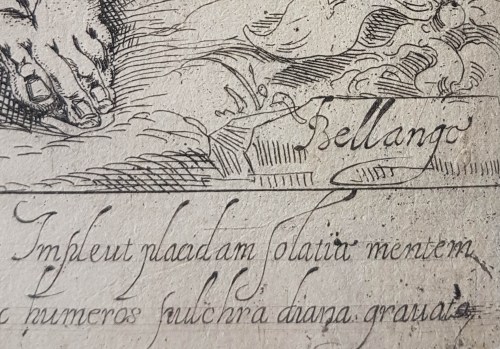 Bellange
Impleut placidam solatia mentem
c humeros pulchra diana grauata